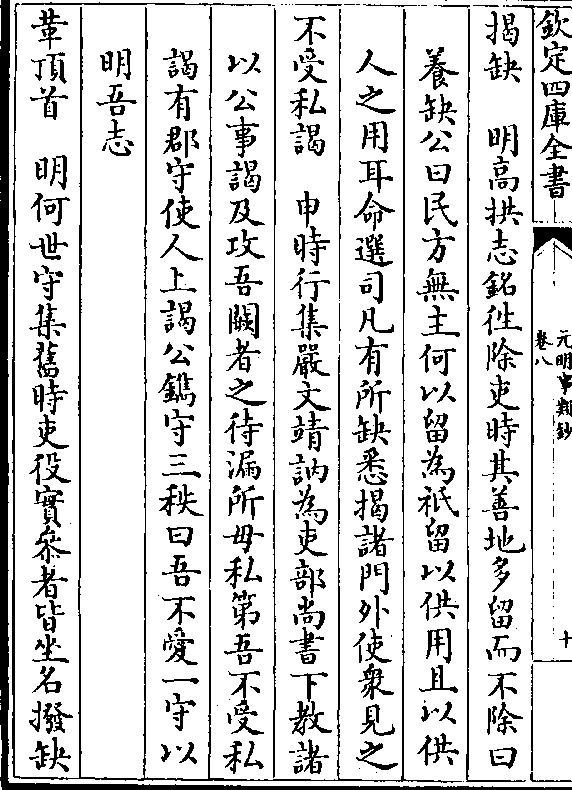 欽定四庫全書
元明事類鈔
卷八
十
揭缺　明高拱志銘徃除吏時其善地多留而不除曰
養缺公曰民方無主何以留為秖留以供用且以供
人之用耳命選司凡有所缺悉揭諸門外使衆見之
不受私謁　申時行集嚴文靖訥為吏部尚書下教諸
以公事謁及攻吾闕者之待漏所毋私第吾不受私
謁有郡守使人上謁公鐫守三秩曰吾不愛一守以
明吾志
革頂首　明何世守集舊時吏役實叅者皆坐名撥缺